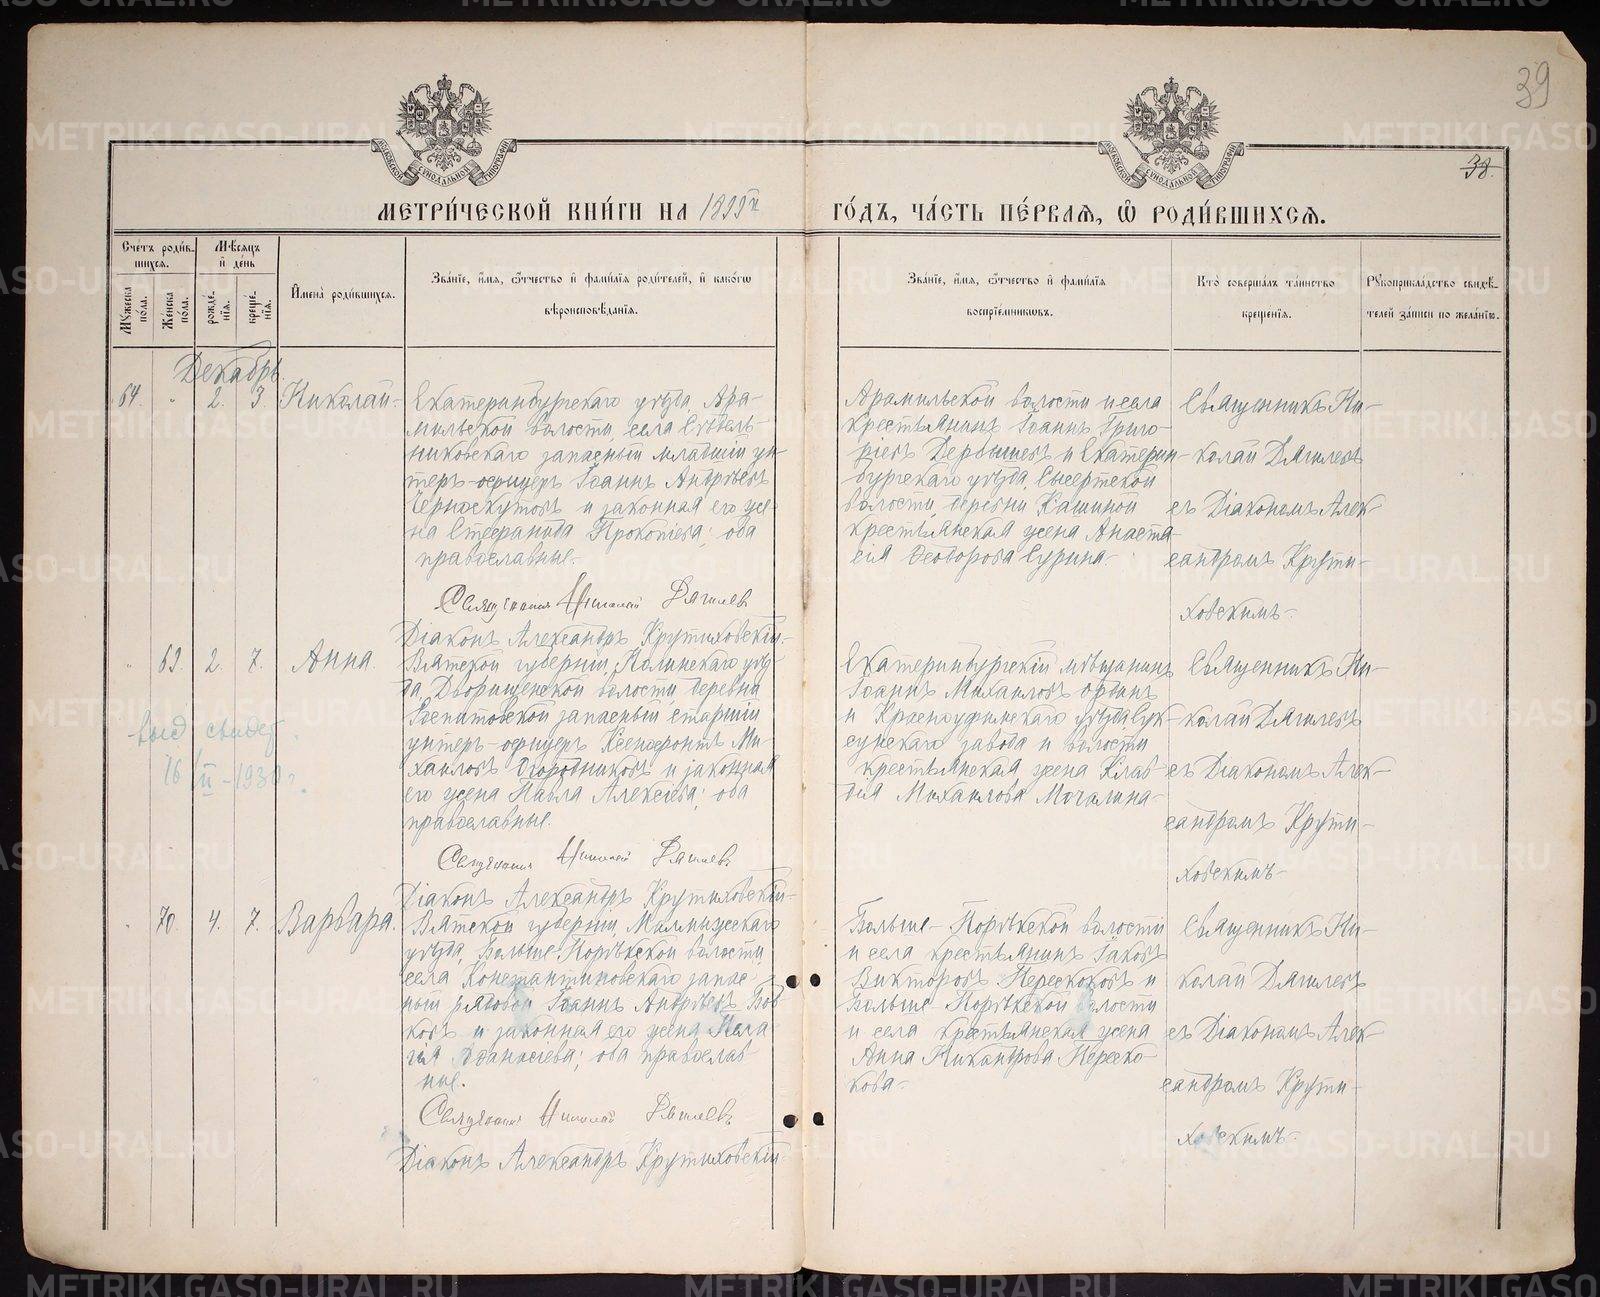 39
38.
МЕТРИ́ЧЕСКОЙ КНИ́ГИ НА 1899й ГО́ДЪ, ЧА́СТЬ ПЕ́РВАЯ, Ѡ РОДИ́ВШИХСЯ.
МОСКОВСКОЙ СУНОДАЛЬНОЙ ТИПОГРАФІИ
МОСКОВСКОЙ СУНОДАЛЬНОЙ ТИПОГРАФІИ
Сче́тъ роди́вшихся.
Мꙋ́жеска по́ла.
Же́нска по́ла.
Мѣ́сяцъ и҆ де́нь
рожде́нїя.
креще́нїя.
И҆мена̀ роди́вшихся.
Зва́нїе, и҆́мя, ѻ҆́тчество и҆ фами́лїя роди́телей, и҆ како́гѡ
вѣроисповѣ́данїя.
Зва́нїе, и҆́мя, ѻ҆́тчество и҆ фами́лїя
воспрїе́мникѡвъ.
Кто̀ соверша́лъ та́инство
креще́нїя.
Рꙋкоприкла́дство свидѣ́-
телей за́писи по жела́нїю.
Декабрь.
64. " 2. 3. Николай-
Екатеринбургскаго уѣзда, Ара-
мильской волости, села Сѣдель-
никовскаго запасный младшій ун-
теръ-офицеръ Іоаннъ Андрѣевъ
Черноскутовъ и законная его же-
на Стефанида Прокопіева; оба
православные.-
Священникъ Николай Дягилевъ
Діаконъ Александръ Крутиховскій-
Арамильской волости и села
крестьянинъ Іоаннъ Григо-
ріевъ Дербышевъ и Екатерин-
бургскаго уѣзда, Сысертской
волости, деревни Кашиной
крестьянская жена Анаста-
сія Ѳеодорова Сурина-
Священникъ Ни-
колай Дягилевъ
съ Діакономъ Алек-
сандромъ Крути-
ховскимъ-
" 69. 2. 7. Анна.
Вятской губерніи, Нолинскаго уѣз-
да, Дворищенской волости деревни
запасный старшій
унтеръ-офицеръ Ксенофонтъ Ми-
хаиловъ Огородниковъ и законная
его жена Павла Алексіева; оба
православные.
Священникъ Николай Дягилевъ
Діаконъ Александръ Крутиховскій-
Екатеринбургскій мѣщанинъ
Іоаннъ Михаиловъ
и Красноуфимскаго уѣзда Сук-
сунскаго завода и волости
крестьянская жена Клав-
дія Михаилова Мочалина-
Священникъ Ни-
колай Дягилевъ
съ Діакономъ Алек-
сандромъ Крути-
ховскимъ-
выд. свидет.
16/II-1930 г.
" 70. 4. 7. Варвара.
Вятской губерніи, Малмыжскаго
уѣзда, Больше-Порѣкской волости,
села Константиновскаго запас-
ный рядовой Іоаннъ Андрѣевъ Боб-
ковъ и законная его жена Пела-
гія Аѳанасіева; оба православ-
ные.
Священникъ Николай Дягилевъ
Діаконъ Александръ Крутиховскій-
Больше-Порѣкской волости
и села крестьянинъ Іаковъ
Викторовъ Перескоковъ и
Больше-Порѣкской волости
и села крестьянская жена
Анна Никандрова Переско-
кова-
Священникъ Ни-
колай Дягилевъ
съ Діакономъ Алек-
сандромъ Крути-
ховскимъ-
METRIKI.GASO-URAL.RU